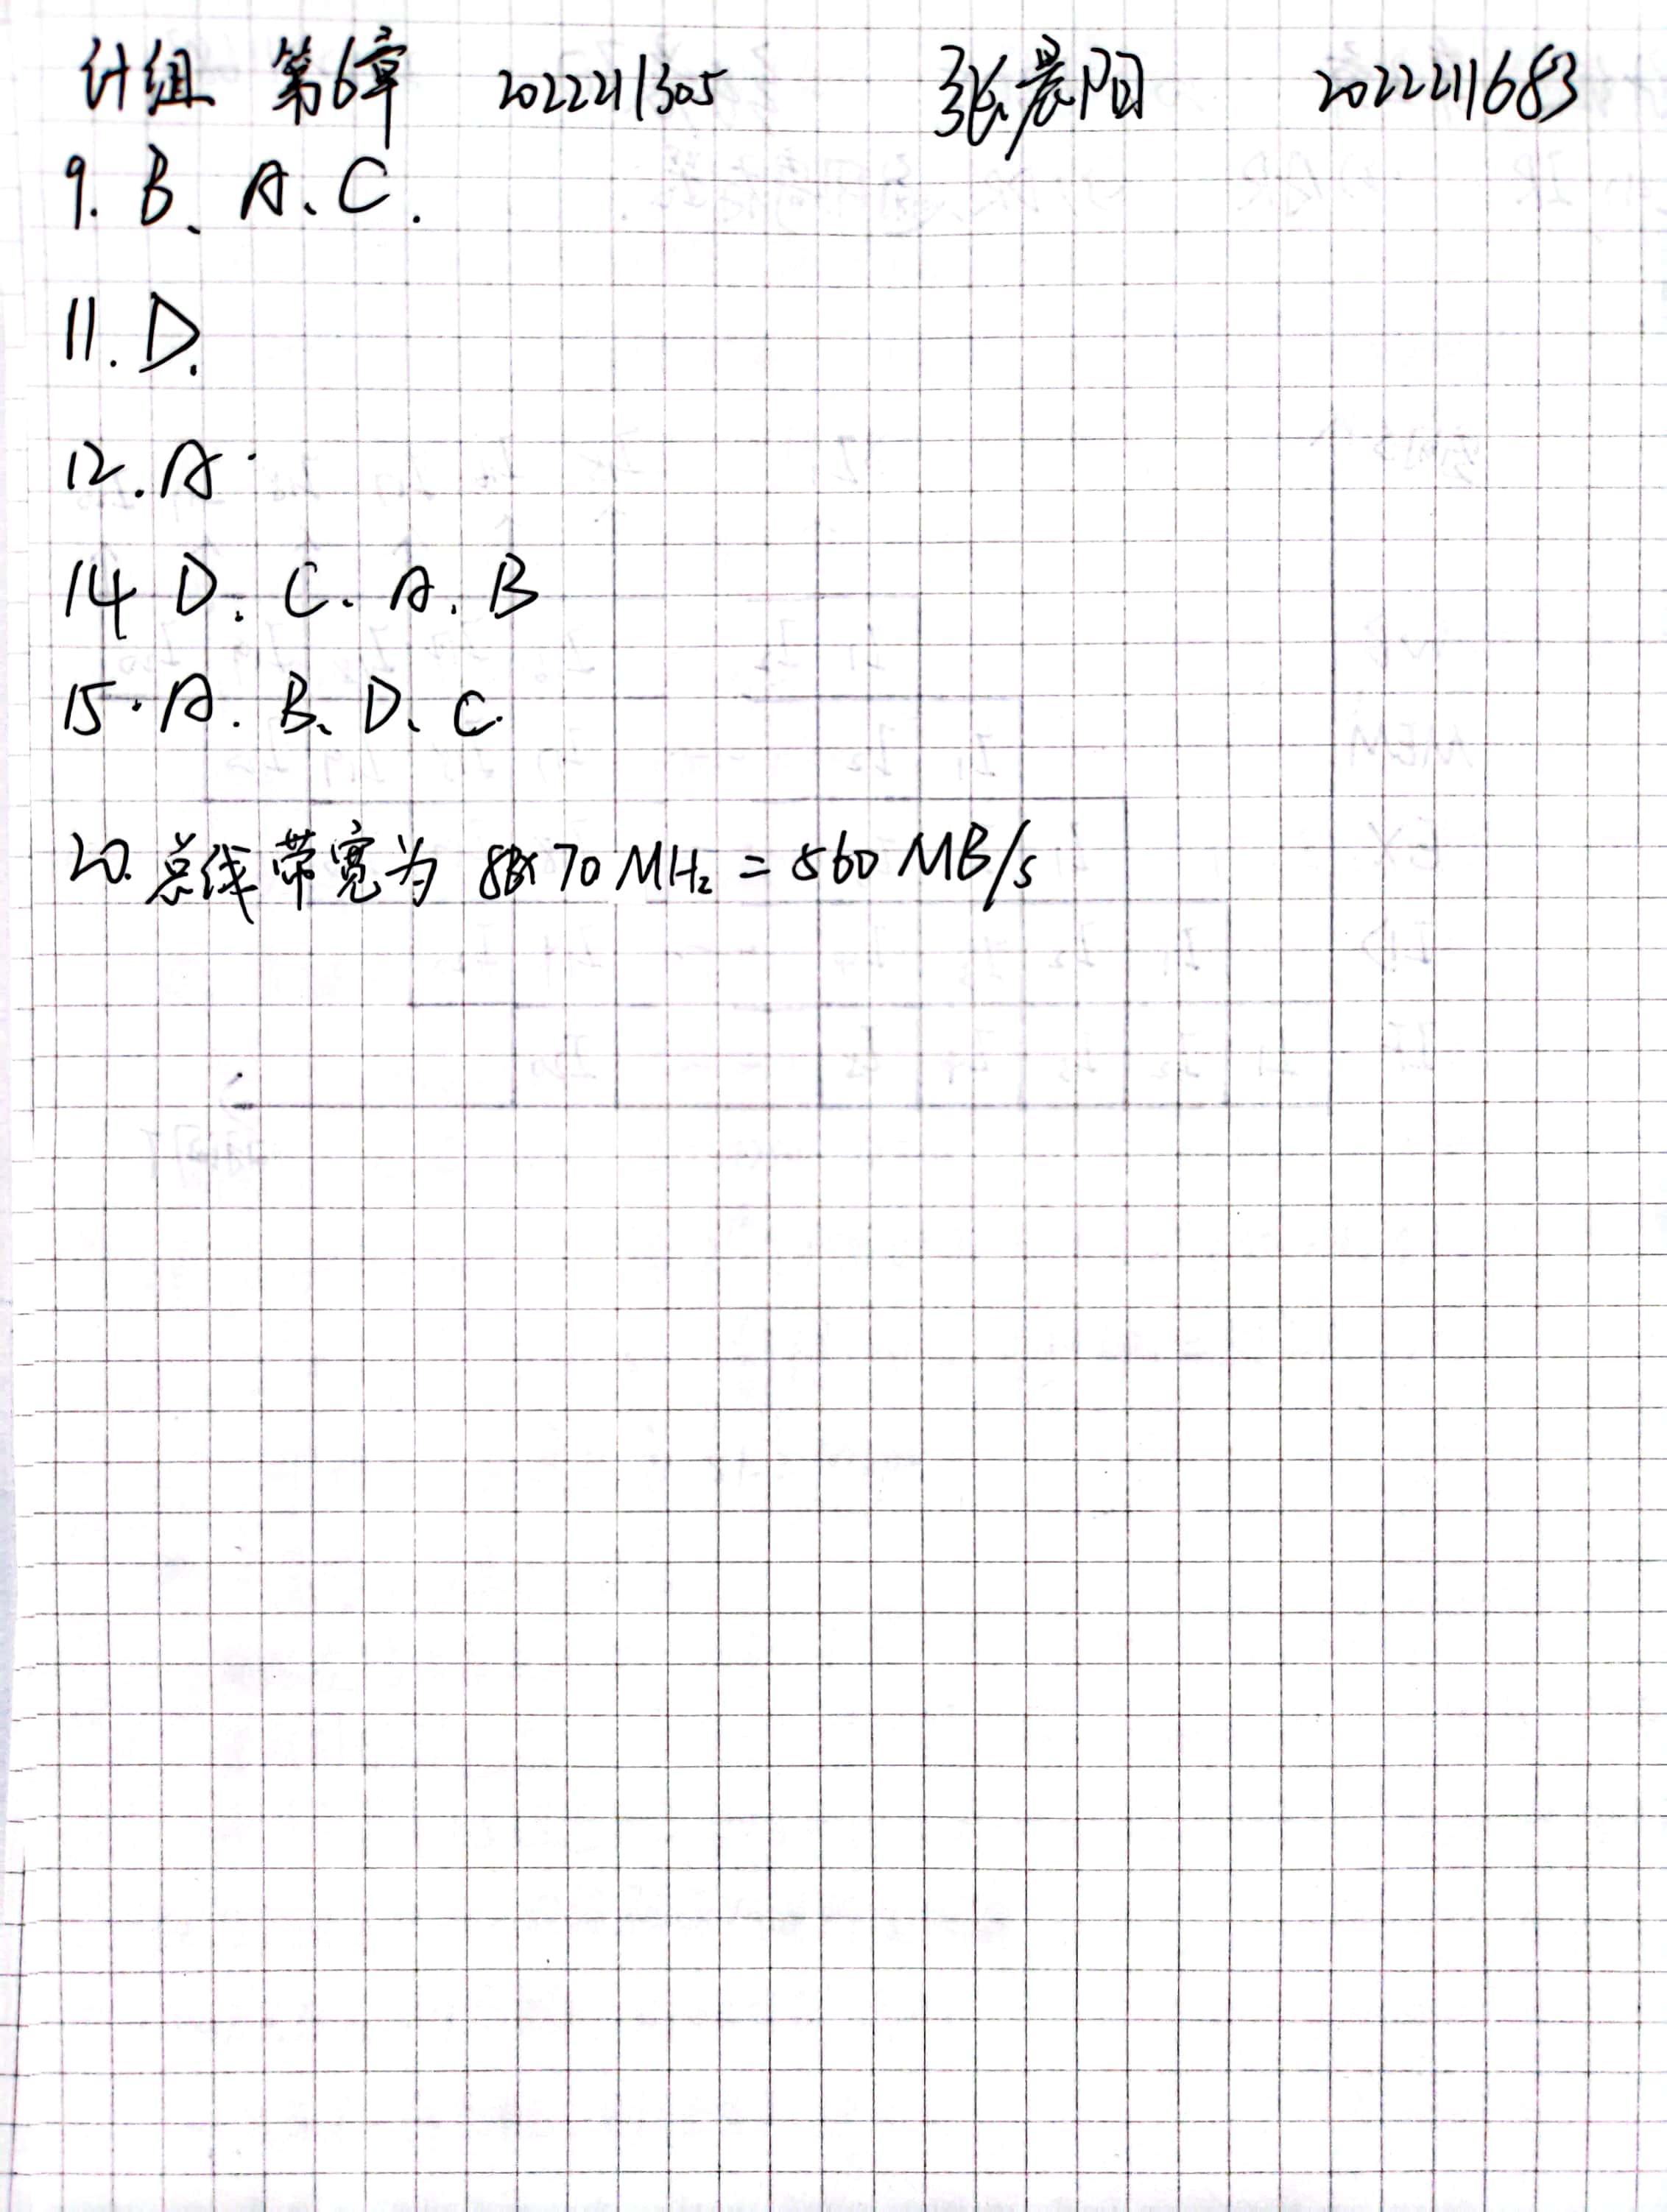 计组 第6章 2022211305 张晨阳 2022211683
9. B、A、C.
11. D.
12. A.
14 D. C. A. B
15. A. B、D、C.
20. 总线带宽为 8B×70MHz = 560 MB/s